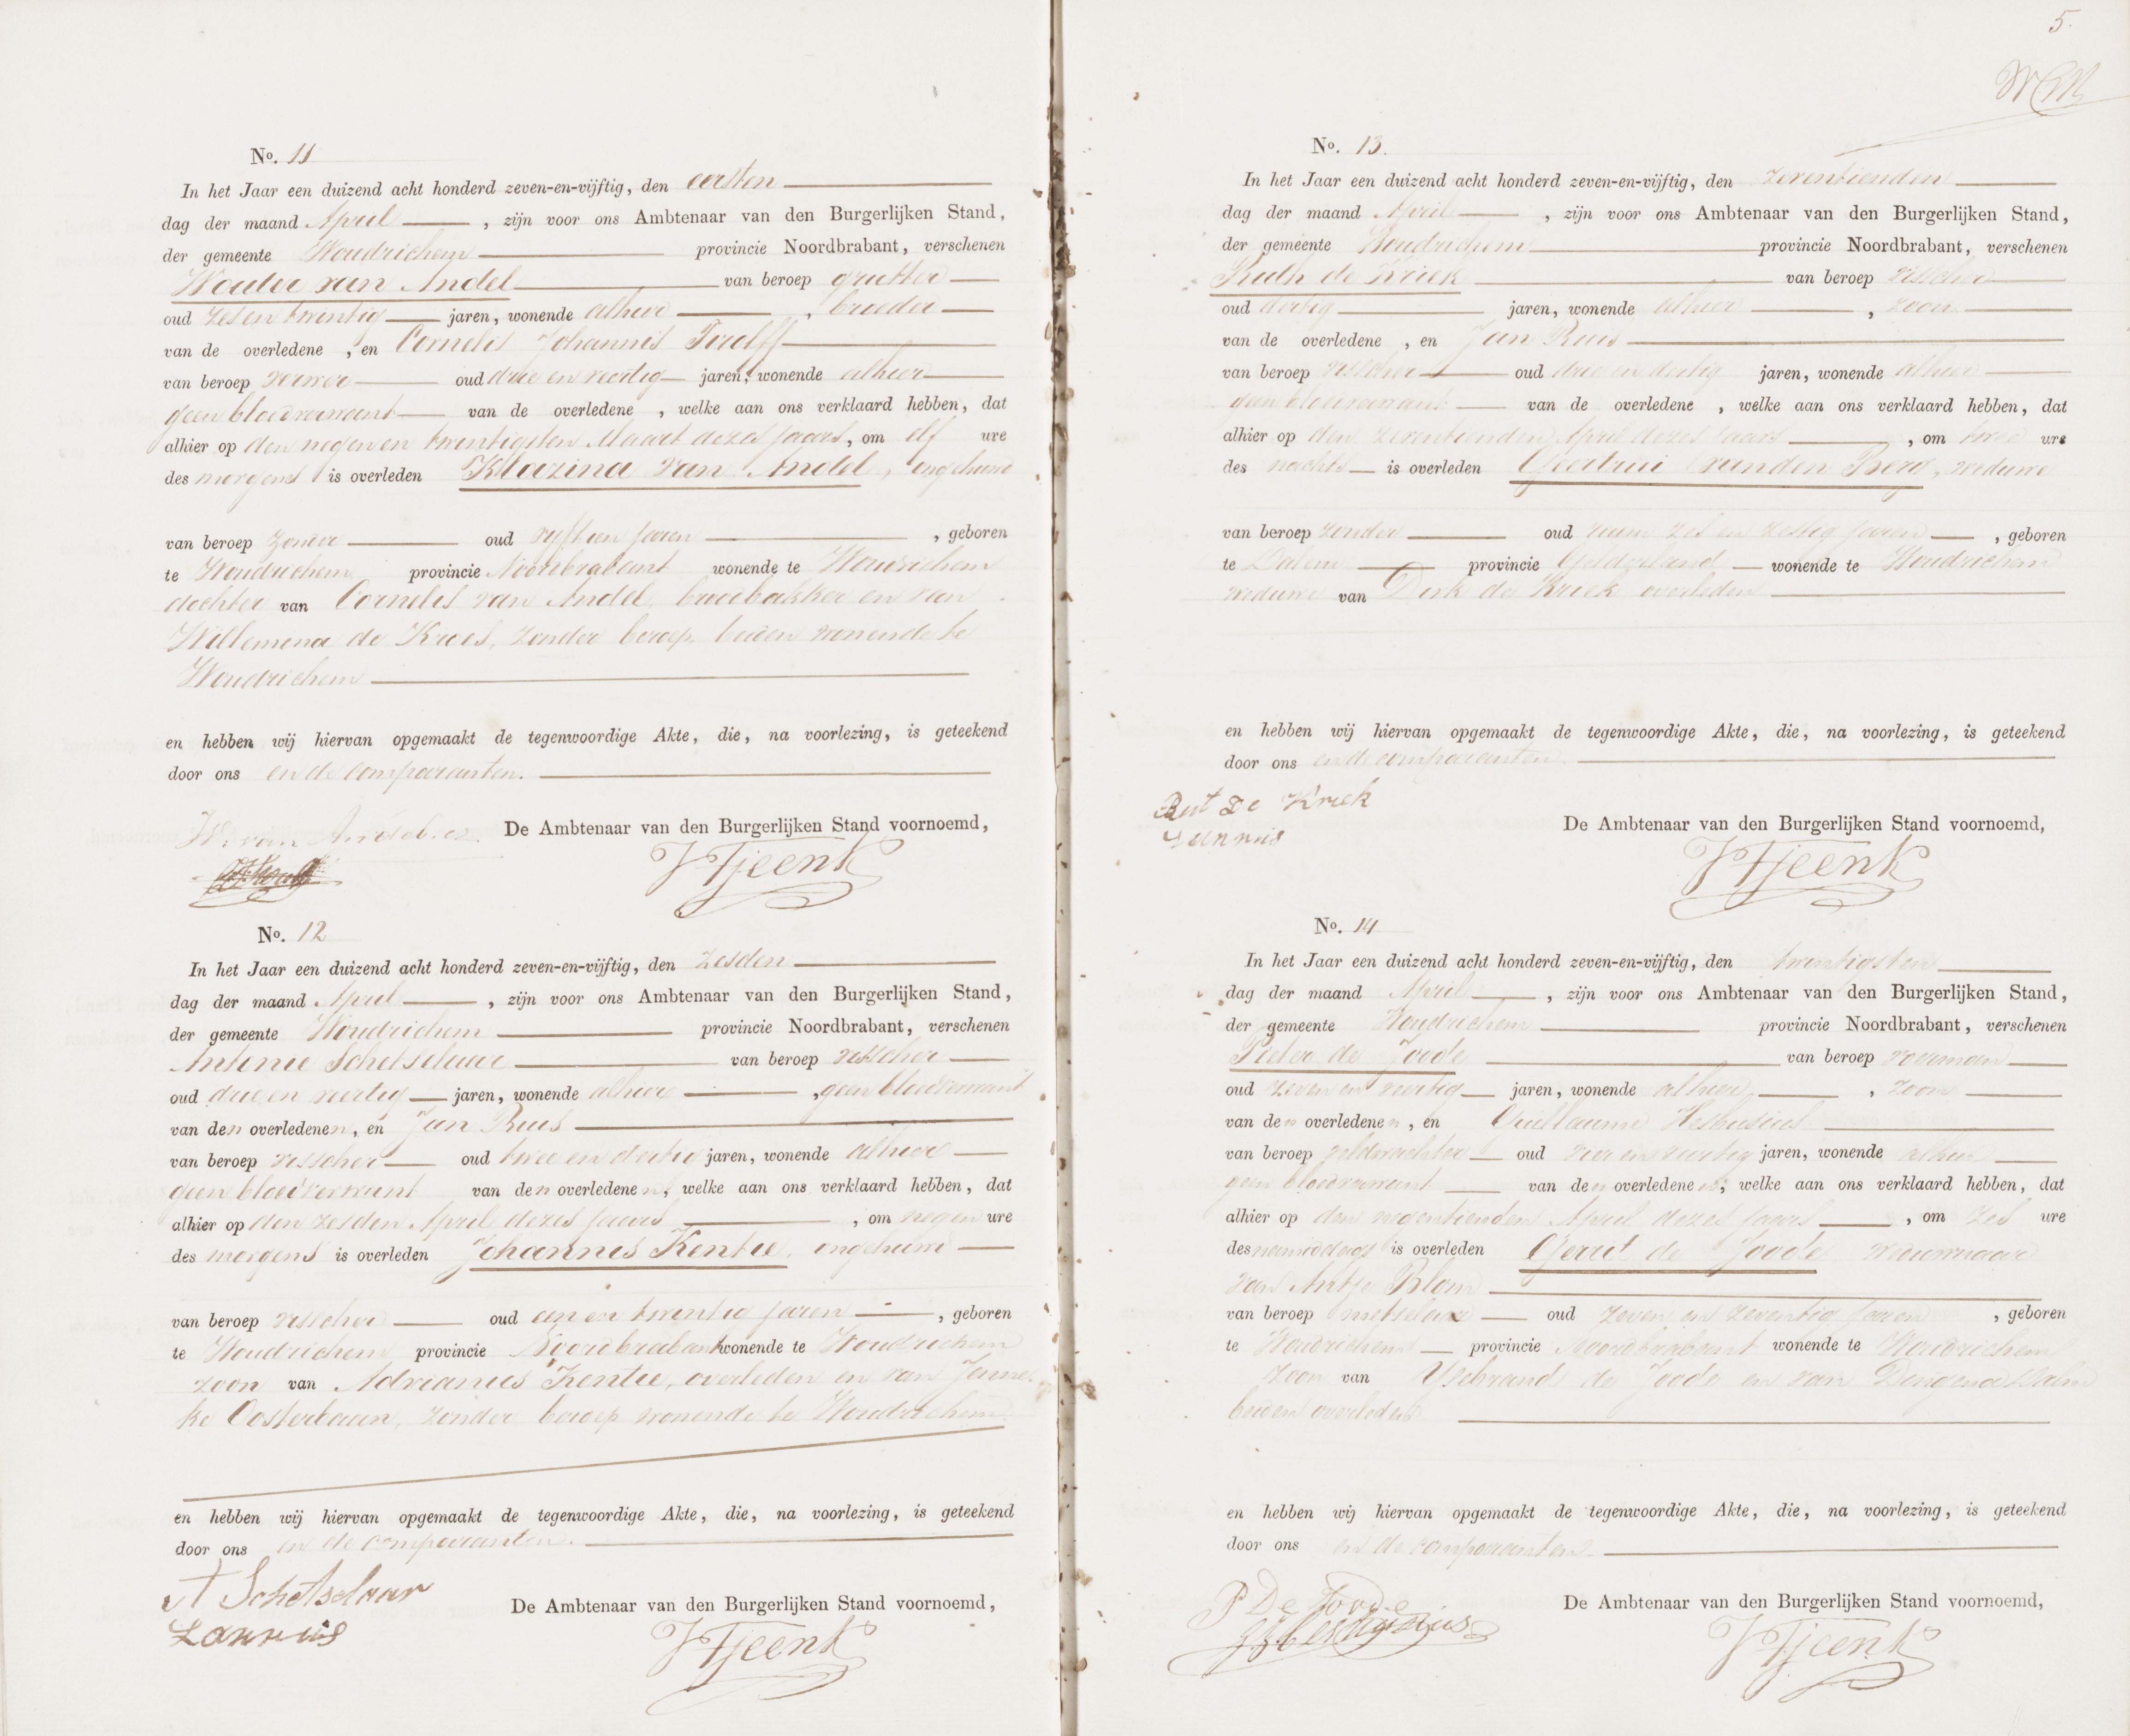 No. 11
In het Jaar een duizend acht honderd zeven-en-vijftig, den eersten
dag der maand April, zijn voor ons Ambtenaar van den Burgerlijken Stand,
der gemeente Woudrichem provincie Noordbrabant, verschenen
Wouter van Andel van beroep grutter
oud zes en twintig jaren, wonende alhier, broeder
van de overledene, en Cornelis Johannis
van beroep verwer oud drie en veertig jaren, wonende alhier
geen bloedverwant van de overledene, welke aan ons verklaard hebben, dat
alhier op den negen en twintigsten Maart dezes jaars, om elf ure
des morgens is overleden Klazina van Andel, ongehuwd
van beroep zonder oud vijftien jaren, geboren
te Woudrichem provincie Noordbrabant wonende te Woudrichem
dochter van Cornelis van Andel, broodbakker en van
Willemena de Kroes, zonder beroep, beiden wonende te
Woudrichem
en hebben wij hiervan opgemaakt de tegenwoordige Akte, die, na voorlezing, is geteekend
door ons en de comparanten.
W. van Andel. cz. De Ambtenaar van den Burgerlijken Stand voornoemd,
JTjeenk
No. 12
In het Jaar een duizend acht honderd zeven-en-vijftig, den zesden
dag der maand April, zijn voor ons Ambtenaar van den Burgerlijken Stand,
der gemeente Woudrichem provincie Noordbrabant, verschenen
Antonie Schetselaar van beroep visscher
oud drie en veertig jaren, wonende alhier, geen bloedverwant
van den overledenen, en Jan Ruis
van beroep visscher oud twee en dertig jaren, wonende alhier
geen bloedverwant van den overledenen, welke aan ons verklaard hebben, dat
alhier op den zesden April dezes jaars, om negen ure
des morgens is overleden Johannis Kentie, ongehuwd
van beroep visscher oud een en twintig jaren, geboren
te Woudrichem provincie Noordbrabant wonende te Woudrichem
zoon van Adrianus Kentie, overleden en van Janne-
ke Oosterbaan, zonder beroep wonende te Woudrichem
en hebben wij hiervan opgemaakt de tegenwoordige Akte, die, na voorlezing, is geteekend
door ons en de comparanten.
A Schetselaar De Ambtenaar van den Burgerlijken Stand voornoemd,
JTjeenk
5.
No. 13.
In het Jaar een duizend acht honderd zeven-en-vijftig, den zeventienden
dag der maand April, zijn voor ons Ambtenaar van den Burgerlijken Stand,
der gemeente Woudrichem provincie Noordbrabant, verschenen
Ruth de Kriek van beroep visscher
oud dertig jaren, wonende alhier, zoon
van de overledene, en Jan Ruis
van beroep visscher oud drie en dertig jaren, wonende alhier
geen bloedverwant van de overledene, welke aan ons verklaard hebben, dat
alhier op den zeventienden April dezes jaars, om twee ure
des nachts is overleden Geertrui van den Berg, weduwe
van beroep zonder oud ruim zes en zestig jaren, geboren
te Dalem provincie Gelderland wonende te Woudrichem
weduwe van Dirk de Kriek overleden
en hebben wij hiervan opgemaakt de tegenwoordige Akte, die, na voorlezing, is geteekend
door ons en de comparanten.
Rut De Kriek
De Ambtenaar van den Burgerlijken Stand voornoemd,
JTjeenk
No. 14
In het Jaar een duizend acht honderd zeven-en-vijftig, den twintigsten
dag der maand April, zijn voor ons Ambtenaar van den Burgerlijken Stand,
der gemeente Woudrichem provincie Noordbrabant, verschenen
Pieter de Joode van beroep voerman
oud zeven en veertig jaren, wonende alhier, zoon
van den overledenen, en Guillaume Heshusius
van beroep veldwachter oud vier en veertig jaren, wonende alhier
geen bloedverwant van den overledenen, welke aan ons verklaard hebben, dat
alhier op den negentienden April dezes jaars, om zes ure
des namiddags is overleden Gerrit de Joode weduwnaar
van Antje Blom
van beroep metselaar oud zeven en zeventig jaren, geboren
te Woudrichem provincie Noordbrabant wonende te Woudrichem
zoon van Ysebrand de Joode en van Dingena
beiden overleden
en hebben wij hiervan opgemaakt de tegenwoordige Akte, die, na voorlezing, is geteekend
door ons en de comparanten.
P De Joode De Ambtenaar van den Burgerlijken Stand voornoemd,
JTjeenk